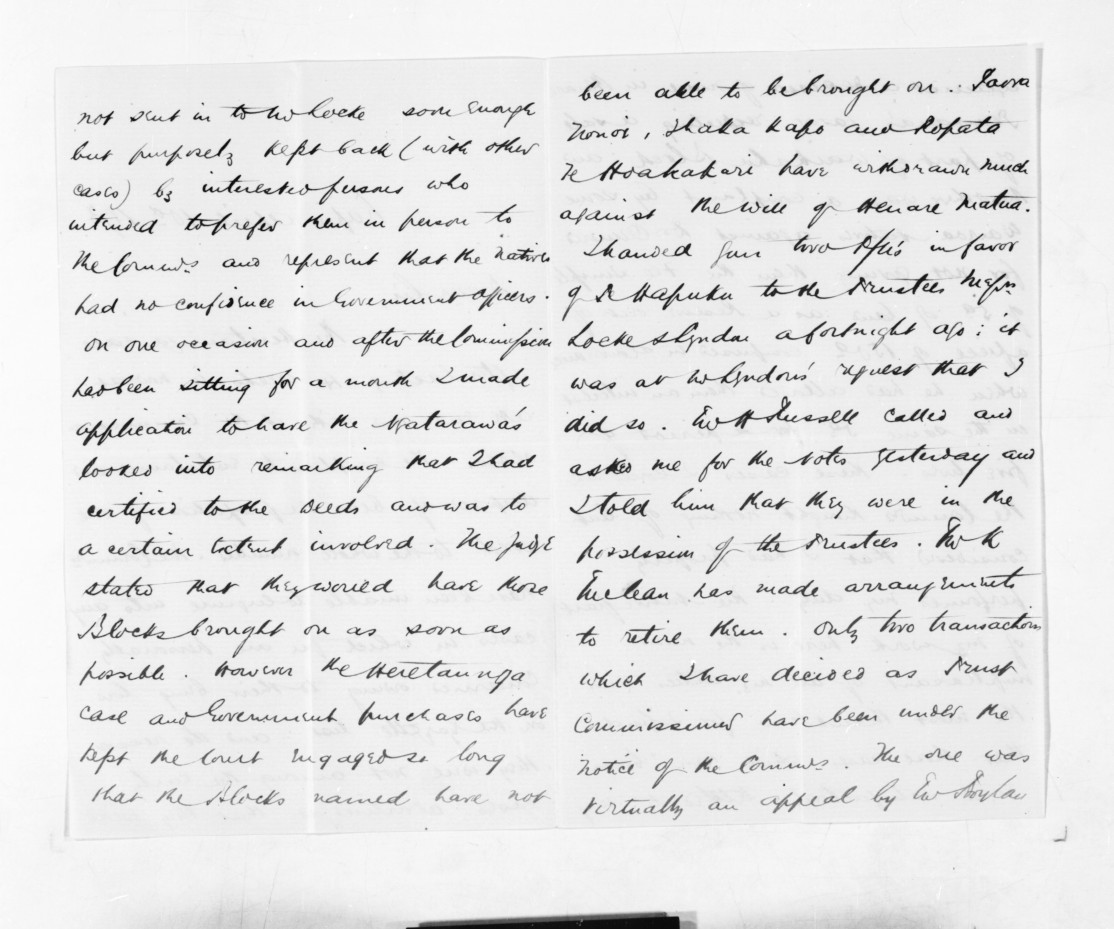 not sent in to Mr Locke soon enough
but purposely kept back (with other
cases) by interested persons who
intended to prefer them in person to
the Commrs and represent that the Natives
had no confidence in Government officers.
on one occasion and after the Commission
had been sitting for a month I made
application to have the
looked into remarking that I had
certified to the Deeds and was to
a certain extent involved. The Judge
stated that they would have those
Blocks brought on as soon as
possible. However the Heretaunga
case and Government purchases have
kept the Court engaged so long
that the Blocks named have not
been able to be brought on. Paora
Nonoi, Ihaka Kapo and Ropata
Te Hoakakari have withdrawn much
against the will of Henare Matua.
I handed your two in favor
of Te Hapuku to the Trustees Messrs
Locke & Lyndon a fortnight ago; it
was at Mr Lyndon's request that I
did so. H Russell called and
asked me for the Notes yesterday and
I told him that they were in the
possession of the Trustees.
McLean has made arrangements
to retire them. Only two transactions
which I have decided as Trust
Commissioner have been under the
notice of the Commrs. The one was
virtually an appeal by